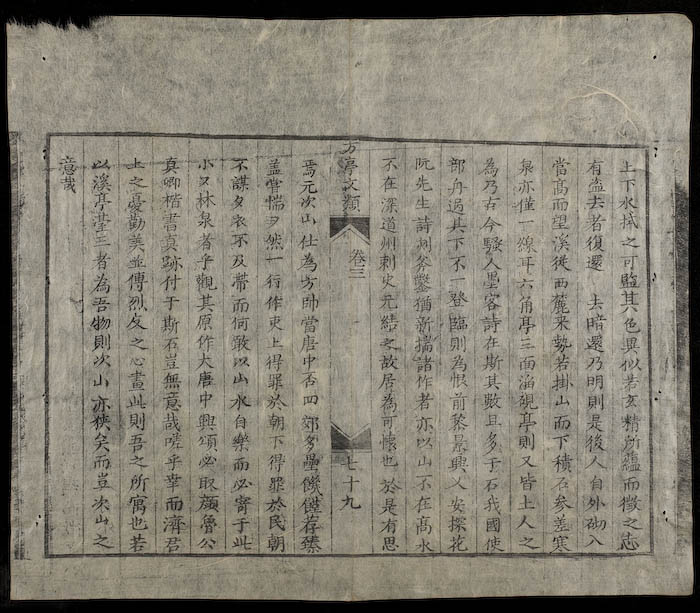 上下水拭之可監其色異似若玄精所蘊而徵之志
有盗去者復還 去暗還乃明則是後人自外砌入
當高而望溪從西麓来勢若掛山而下積石參差寒
泉亦僅一線耳六角亭三面滔覛亭則又皆上人之
為乃古今騷人墨客詩在斯其數且多于石我國使
部舟過其下不一登臨則為恨前黎景興人安探花
阮先生詩刻斧鑿猶新揣諸作者亦以山不在高水
不在深道州刺史元結之故居為可懷也於是有思
方亭文類
卷三
七十九
焉元次山仕為方帥當唐中否四郊多壘饑僅存臻
盖嘗惴夕然一行作吏上得罪於朝下得罪於民朝
不謀夕衣不及帶而何敢以山水自樂而必寄于此
小夕林泉者乎觀其原作大唐中興頌必取顔魯公
真卿楷書真跡付于斯石豈無意哉嗟乎幸而濟君
上之憂勤美並傳烈反之心畫此則吾之所寓也若
以溪亭臺三者為吾物則次山亦狹矣而豈次山之
意哉